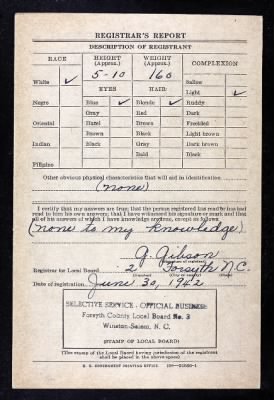 REGISTRAR'S REPORT
DESCRIPTION OF REGISTRANT
RACE HEIGHT (Approx.) WEIGHT (Approx.) COMPLEXION
5-10 160 Sallow
White ✓ EYES HAIR Light ✓
Negro Blue ✓ Blonde ✓ Ruddy
Gray Red Dark
Oriental Hazel Brown Freckled
Brown Black Light brown
Indian Black Gray Dark brown
Bald Black
Filipino
Other obvious physical characteristics that will aid in identification
(none)
I certify that my answers are true; that the person registered has read or has had
read to him his own answers; that I have witnessed his signature or mark and that
all of his answers of which I have knowledge are true, except as follows:
(none to my knowledge)
G. Gibson
Registrar for Local Board 2 Forsyth N.C.
Date of registration June 30, 1942
SELECTIVE SERVICE - OFFICIAL BUSINESS
Forsyth County Local Board No. 3
Winston-Salem, N. C.
(STAMP OF LOCAL BOARD)
(The stamp of the Local Board having jurisdiction of the registrant
shall be placed in the above space)
U. S. GOVERNMENT PRINTING OFFICE